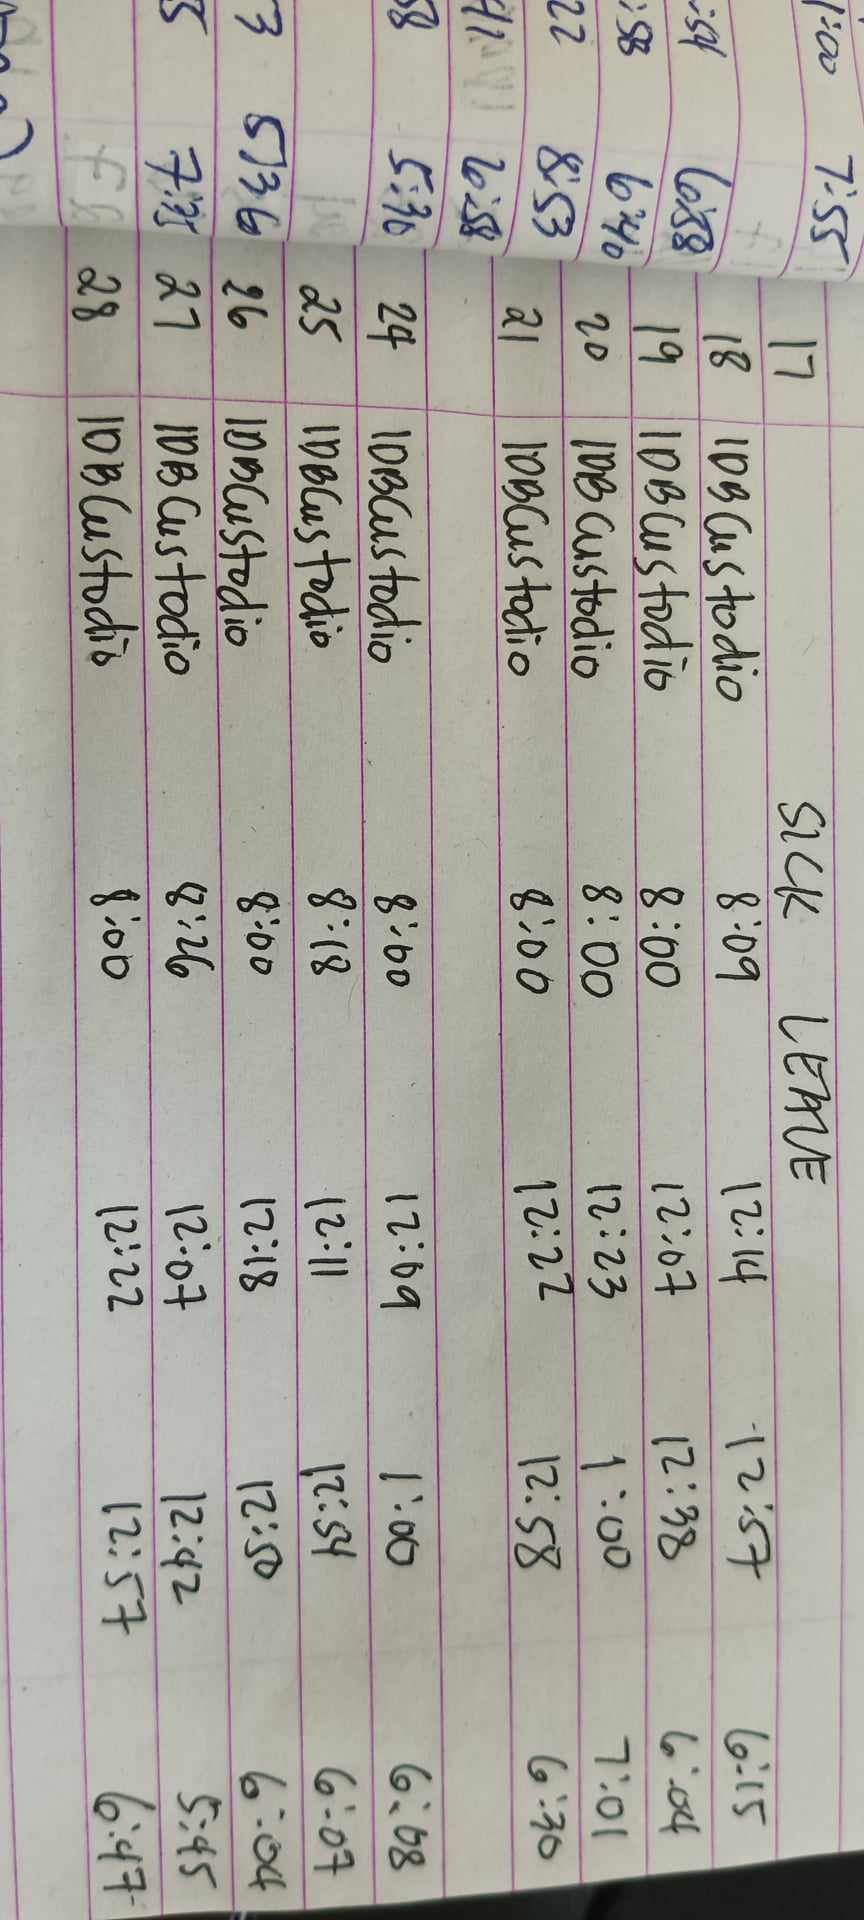 1:00 7:55
:54 6:58
:58 6:40
22 8:53
41 6:58
58 5:30
3 5:36
5 7:35
17 SICK LEAVE
18 IDBCustodio 8:09 12:14 12:57 6:15
19 IDBCustodio 8:00 12:07 12:38 6:04
20 IDBCustodio 8:00 12:23 1:00 7:01
21 IDBCustodio 8:00 12:22 12:58 6:30
24 IDBCustodio 8:00 12:09 1:00 6:08
25 IDBCustodio 8:18 12:11 12:54 6:07
26 IDBCustodio 8:00 12:18 12:50 6:04
27 IDBCustodio 8:26 12:07 12:42 5:45
28 IDBCustodio 8:00 12:22 12:57 6:47